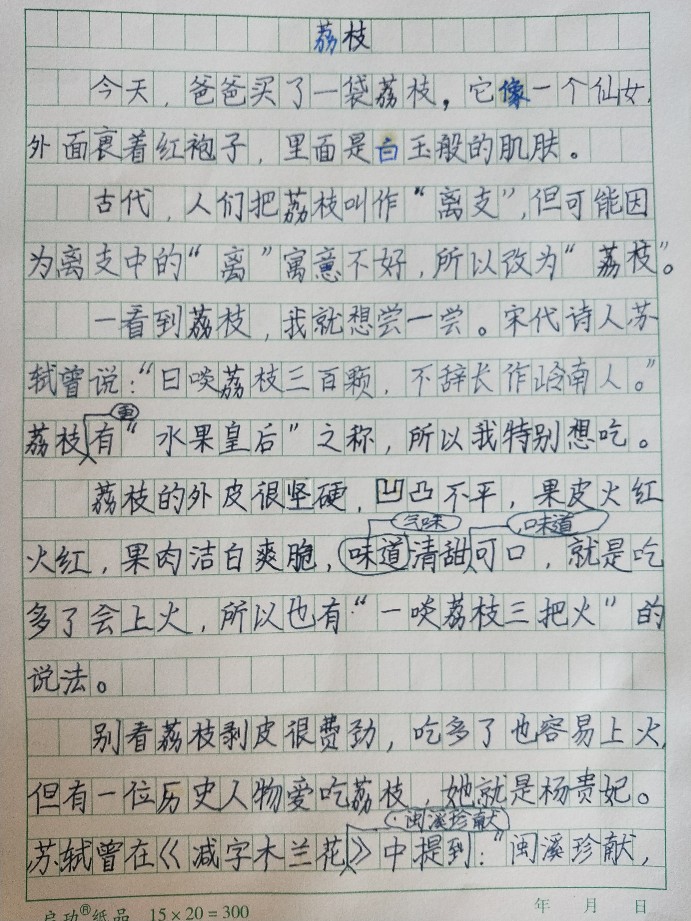 荔枝
今天，爸爸买了一袋荔枝，它像一个仙女，
外面裹着红袍子，里面是白玉般的肌肤。
古代，人们把荔枝叫作“离支”，但可能因
为离支中的“离”寓意不好，所以改为“荔枝”。
一看到荔枝，我就想尝一尝。宋代诗人苏
轼曾说：“日啖荔枝三百颗，不辞长作岭南人。”
更
荔枝有“水果皇后”之称，所以我特别想吃。
荔枝的外皮很坚硬，凹凸不平，果皮火红
气味 ，味道
火红，果肉洁白爽脆，味道清甜可口，就是吃
多了会上火，所以也有“一啖荔枝三把火”的
说法。
别看荔枝剥皮很费劲，吃多了也容易上火，
但有一位历史人物爱吃荔枝，她就是杨贵妃。
·闽溪珍献
苏轼曾在《减字木兰花》中提到：“闽溪珍献，
启功®纸品 15×20=300 年 月 日